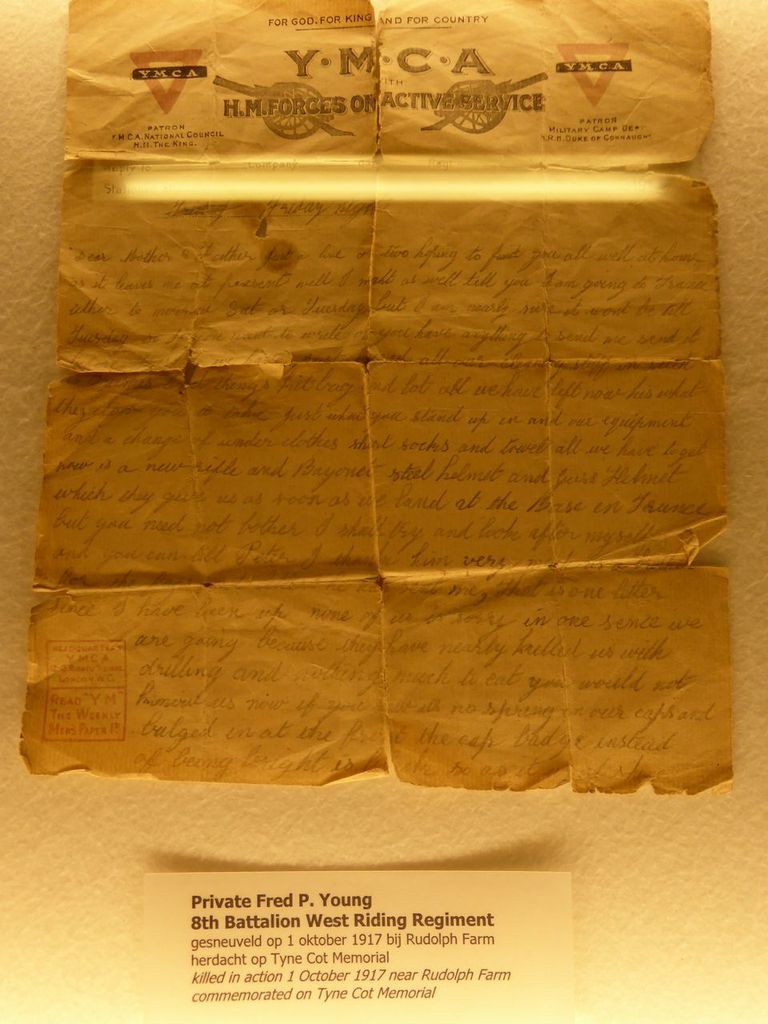 FOR GOD. FOR KING AND FOR COUNTRY
Y·M·C·A
WITH
H.M. FORCES ON ACTIVE SERVICE
YMCA
YMCA
PATRON
Y.M.C.A. NATIONAL COUNCIL
H.M. THE KING.
PATRON
MILITARY CAMP DEPT
H.R.H. DUKE OF CONNAUGHT
Reply to Company
Friday night
Dear Mother & Father just a line or two hoping to find you all well at home
as it leaves me at present well I might as well tell you I am going to France
either to morrow Sat or Tuesday but I am nearly sure it wont be till
Tuesday so if you want to write or you have anything to send me send it
all our
things kit bag and lot all we have left now his what
they allow you to take just what you stand up in and our equipment
and a change of under clothes shirt socks and towel all we have to get
now is a new rifle and Bayonet steel helmet and Gass Helmet
which they give us as soon as we land at the Base in France
but you need not bother I shall try and look after myself
and you can tell Peter I him very
me, that is one letter
since I have been up none of us is sorry in one sence we
are going because they have nearly killed us with
drilling and nothing much to eat you would not
know us now if you saw us no spring in our caps and
bulged in at the front the cap badge instead
of being bright is so as it
HEADQUARTERS
YMCA
LONDON W.C.
READ "YM"
THE WEEKLY
MENS PAPER 1D
Private Fred P. Young
8th Battalion West Riding Regiment
gesneuveld op 1 oktober 1917 bij Rudolph Farm
herdacht op Tyne Cot Memorial
killed in action 1 October 1917 near Rudolph Farm
commemorated on Tyne Cot Memorial